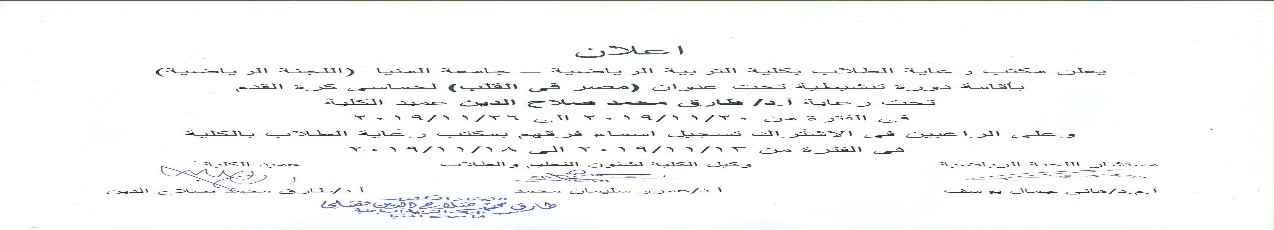 اعلان
يعلن مكتب رعاية الطلاب بكلية التربية الرياضية – جامعة المنيا (اللجنة الرياضية)
بأقامة دورة تنشيطية تحت عنوان (مصر في القلب) لخماسي كرة القدم
تحت رعاية أ.د/ طارق محمد صلاح الدين عميد الكلية
في الفترة من ٢٠١٩/١١/٢٠ الى ٢٠١٩/١١/٢٦
وعلى الراغبين في الاشتراك تسجيل اسماء فرقهم بمكتب رعاية الطلاب بالكلية
في الفترة من ٢٠١٩/١١/١٣ الى ٢٠١٩/١١/١٨
مستشار اللجنة الرياضية وكيل الكلية لشئون التعليم والطلاب عميد الكلية
أ.م.د/هاني جمال يوسف أ.د/عمرو سليمان محمد أ.د/طارق محمد صلاح الدين